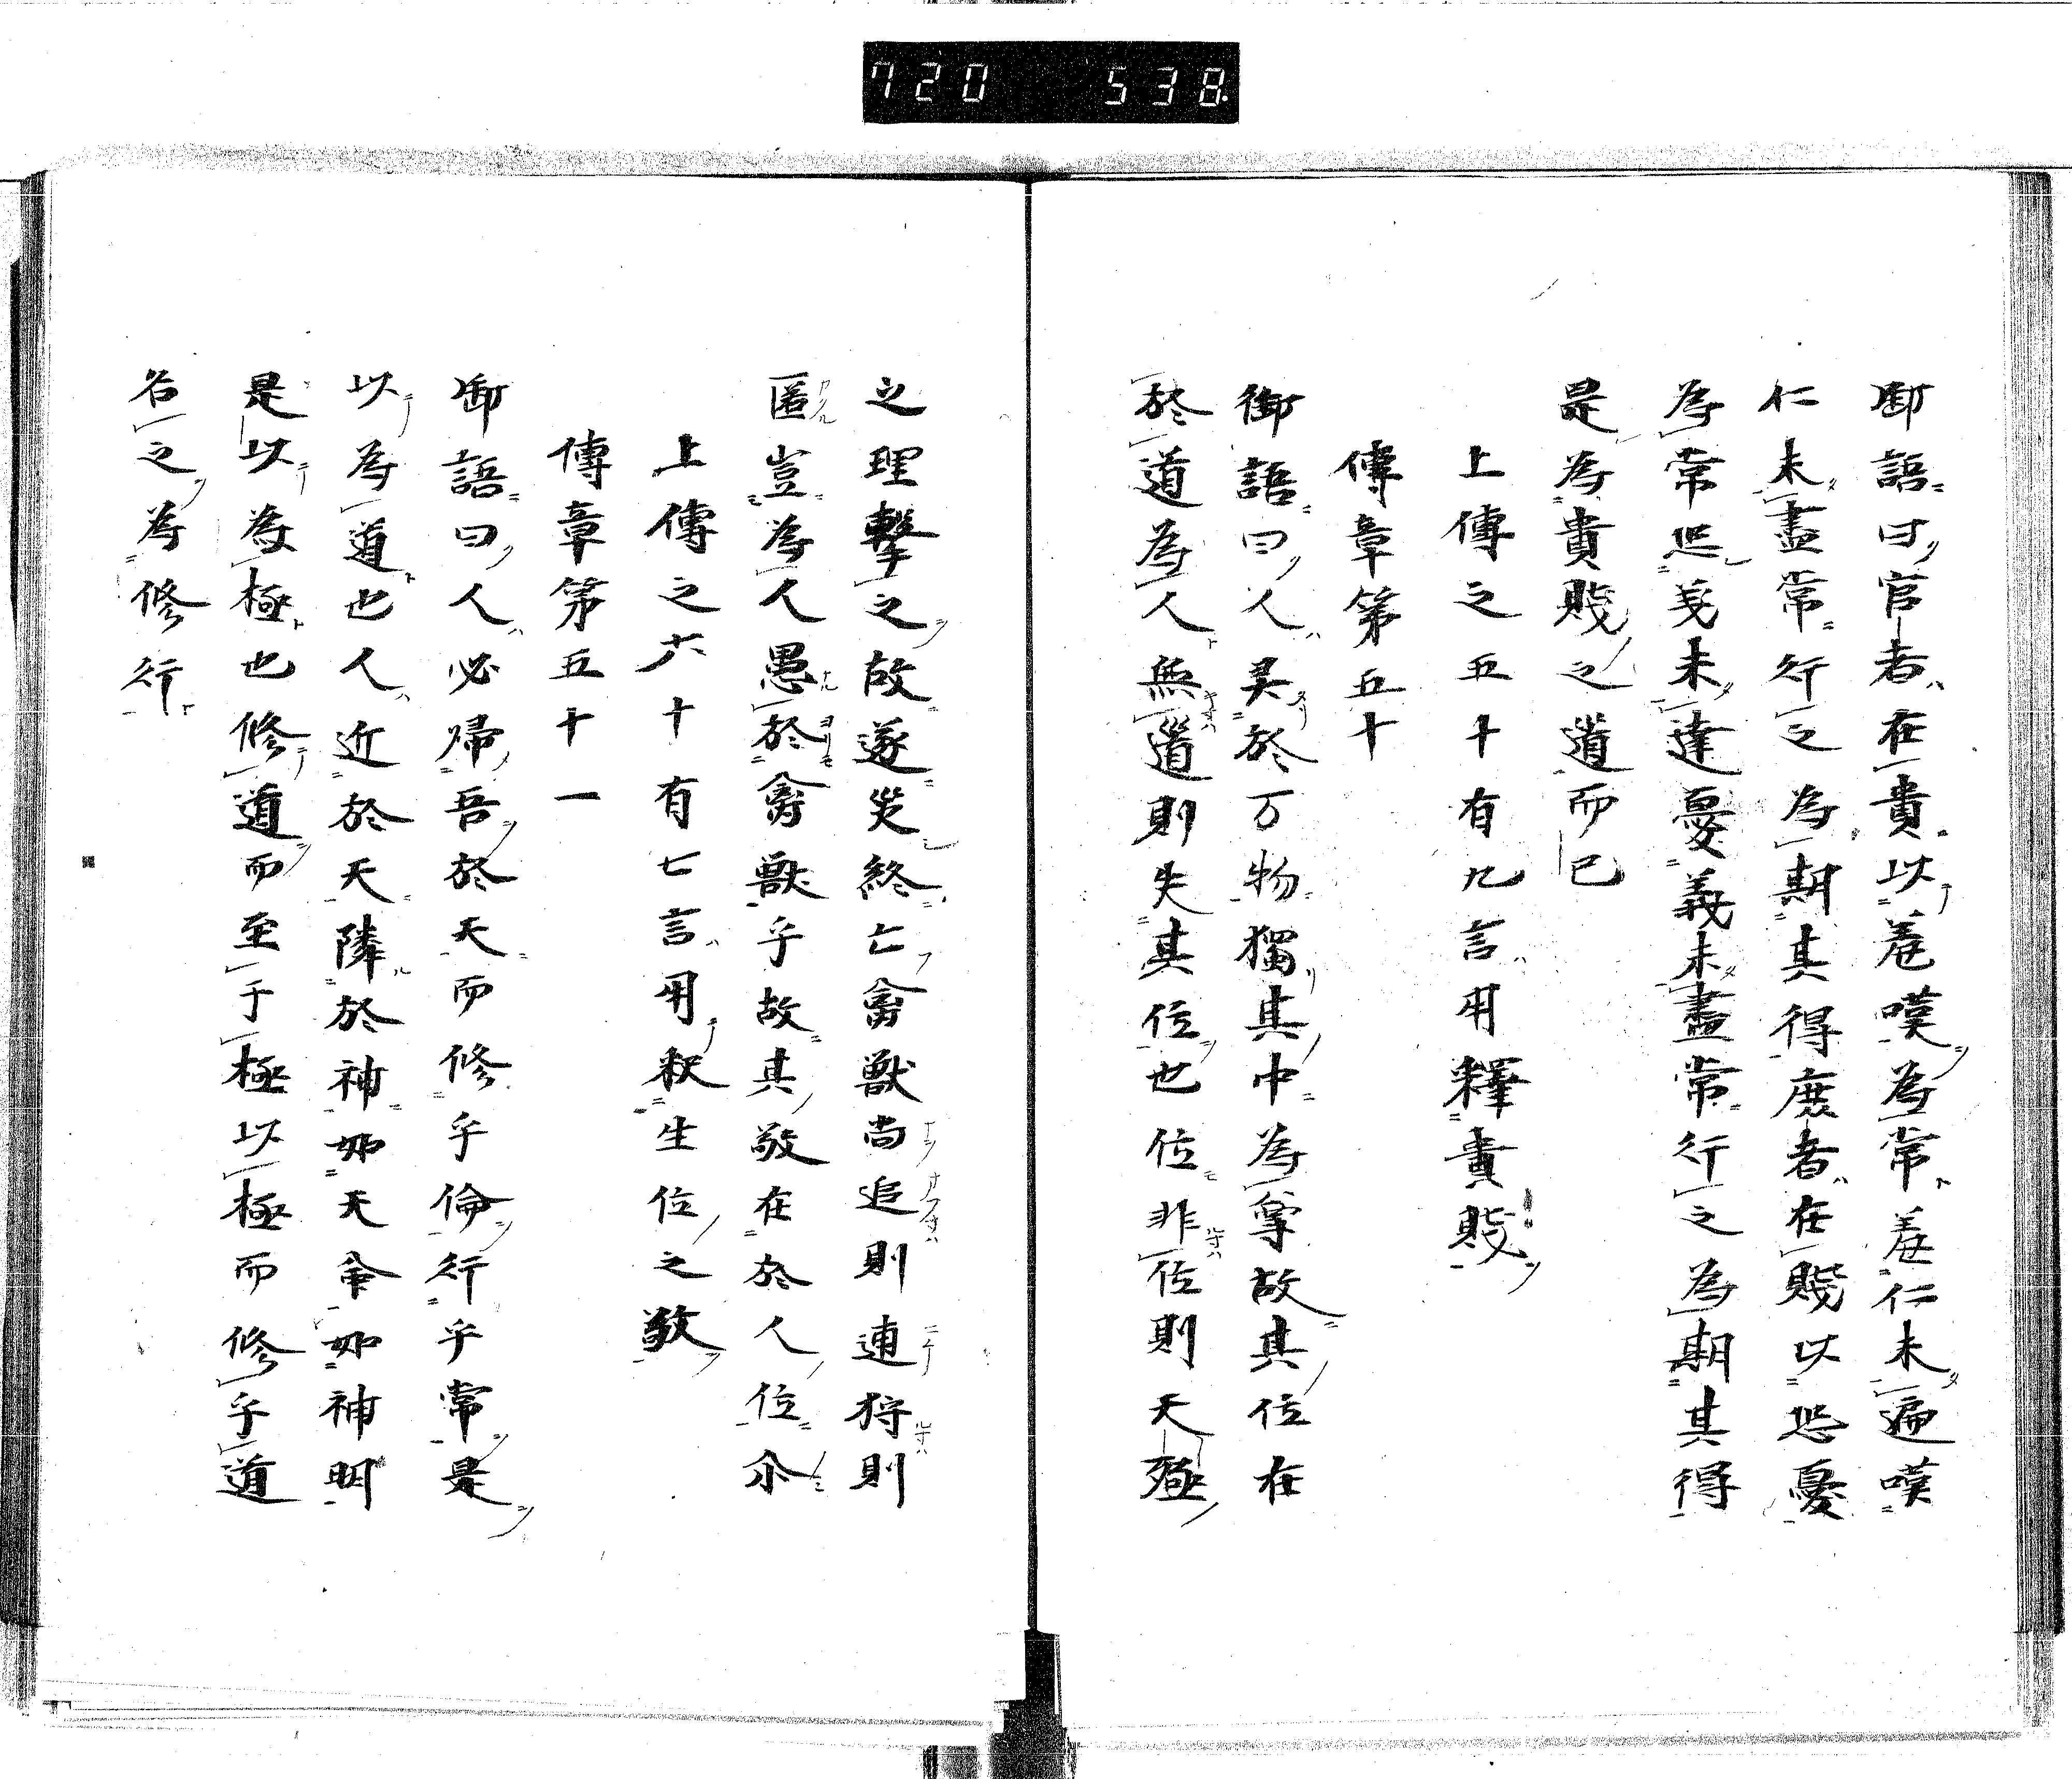 720 538
御語曰官者在貴以羞嘆為常羞仁未遍嘆
仁未盡常行之為期其得庶者在賤以恐憂
為常恐義未達憂義未盡常行之為期其得
是為貴賤之道而已
上傳之五十有九言用釋貴賤
傳章第五十
御語曰人灵於万物獨其中為尊故其位在
於道為人無道則失其位也位非位則天殛
之理撃之故遂災終亡禽獸尚追則連狩則
匿豈為人愚於禽獸乎故其敬在於人位尒
上傳之六十有七言用釈生位之敬
傳章第五十一
御語曰人必帰吾於天而修乎倫行乎常是
以為道也人近於天隣於神如天命如神明
是以為極也修道而至于極以極而修乎道
名之為修行